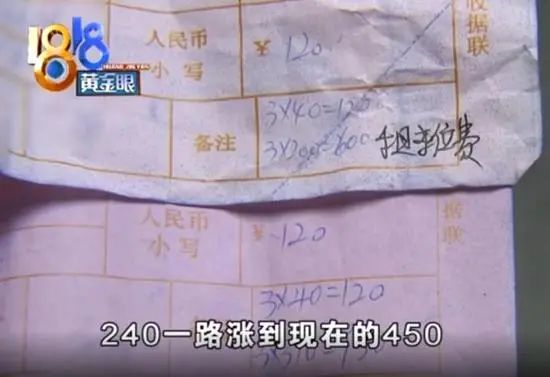 1818
黄金眼
收据联
人民币
小写
¥ 120
备注
3×40=120
3×200=600
租车位费
人民币
小写
¥ 120
据联
3×40=120
240一路涨到现在的450